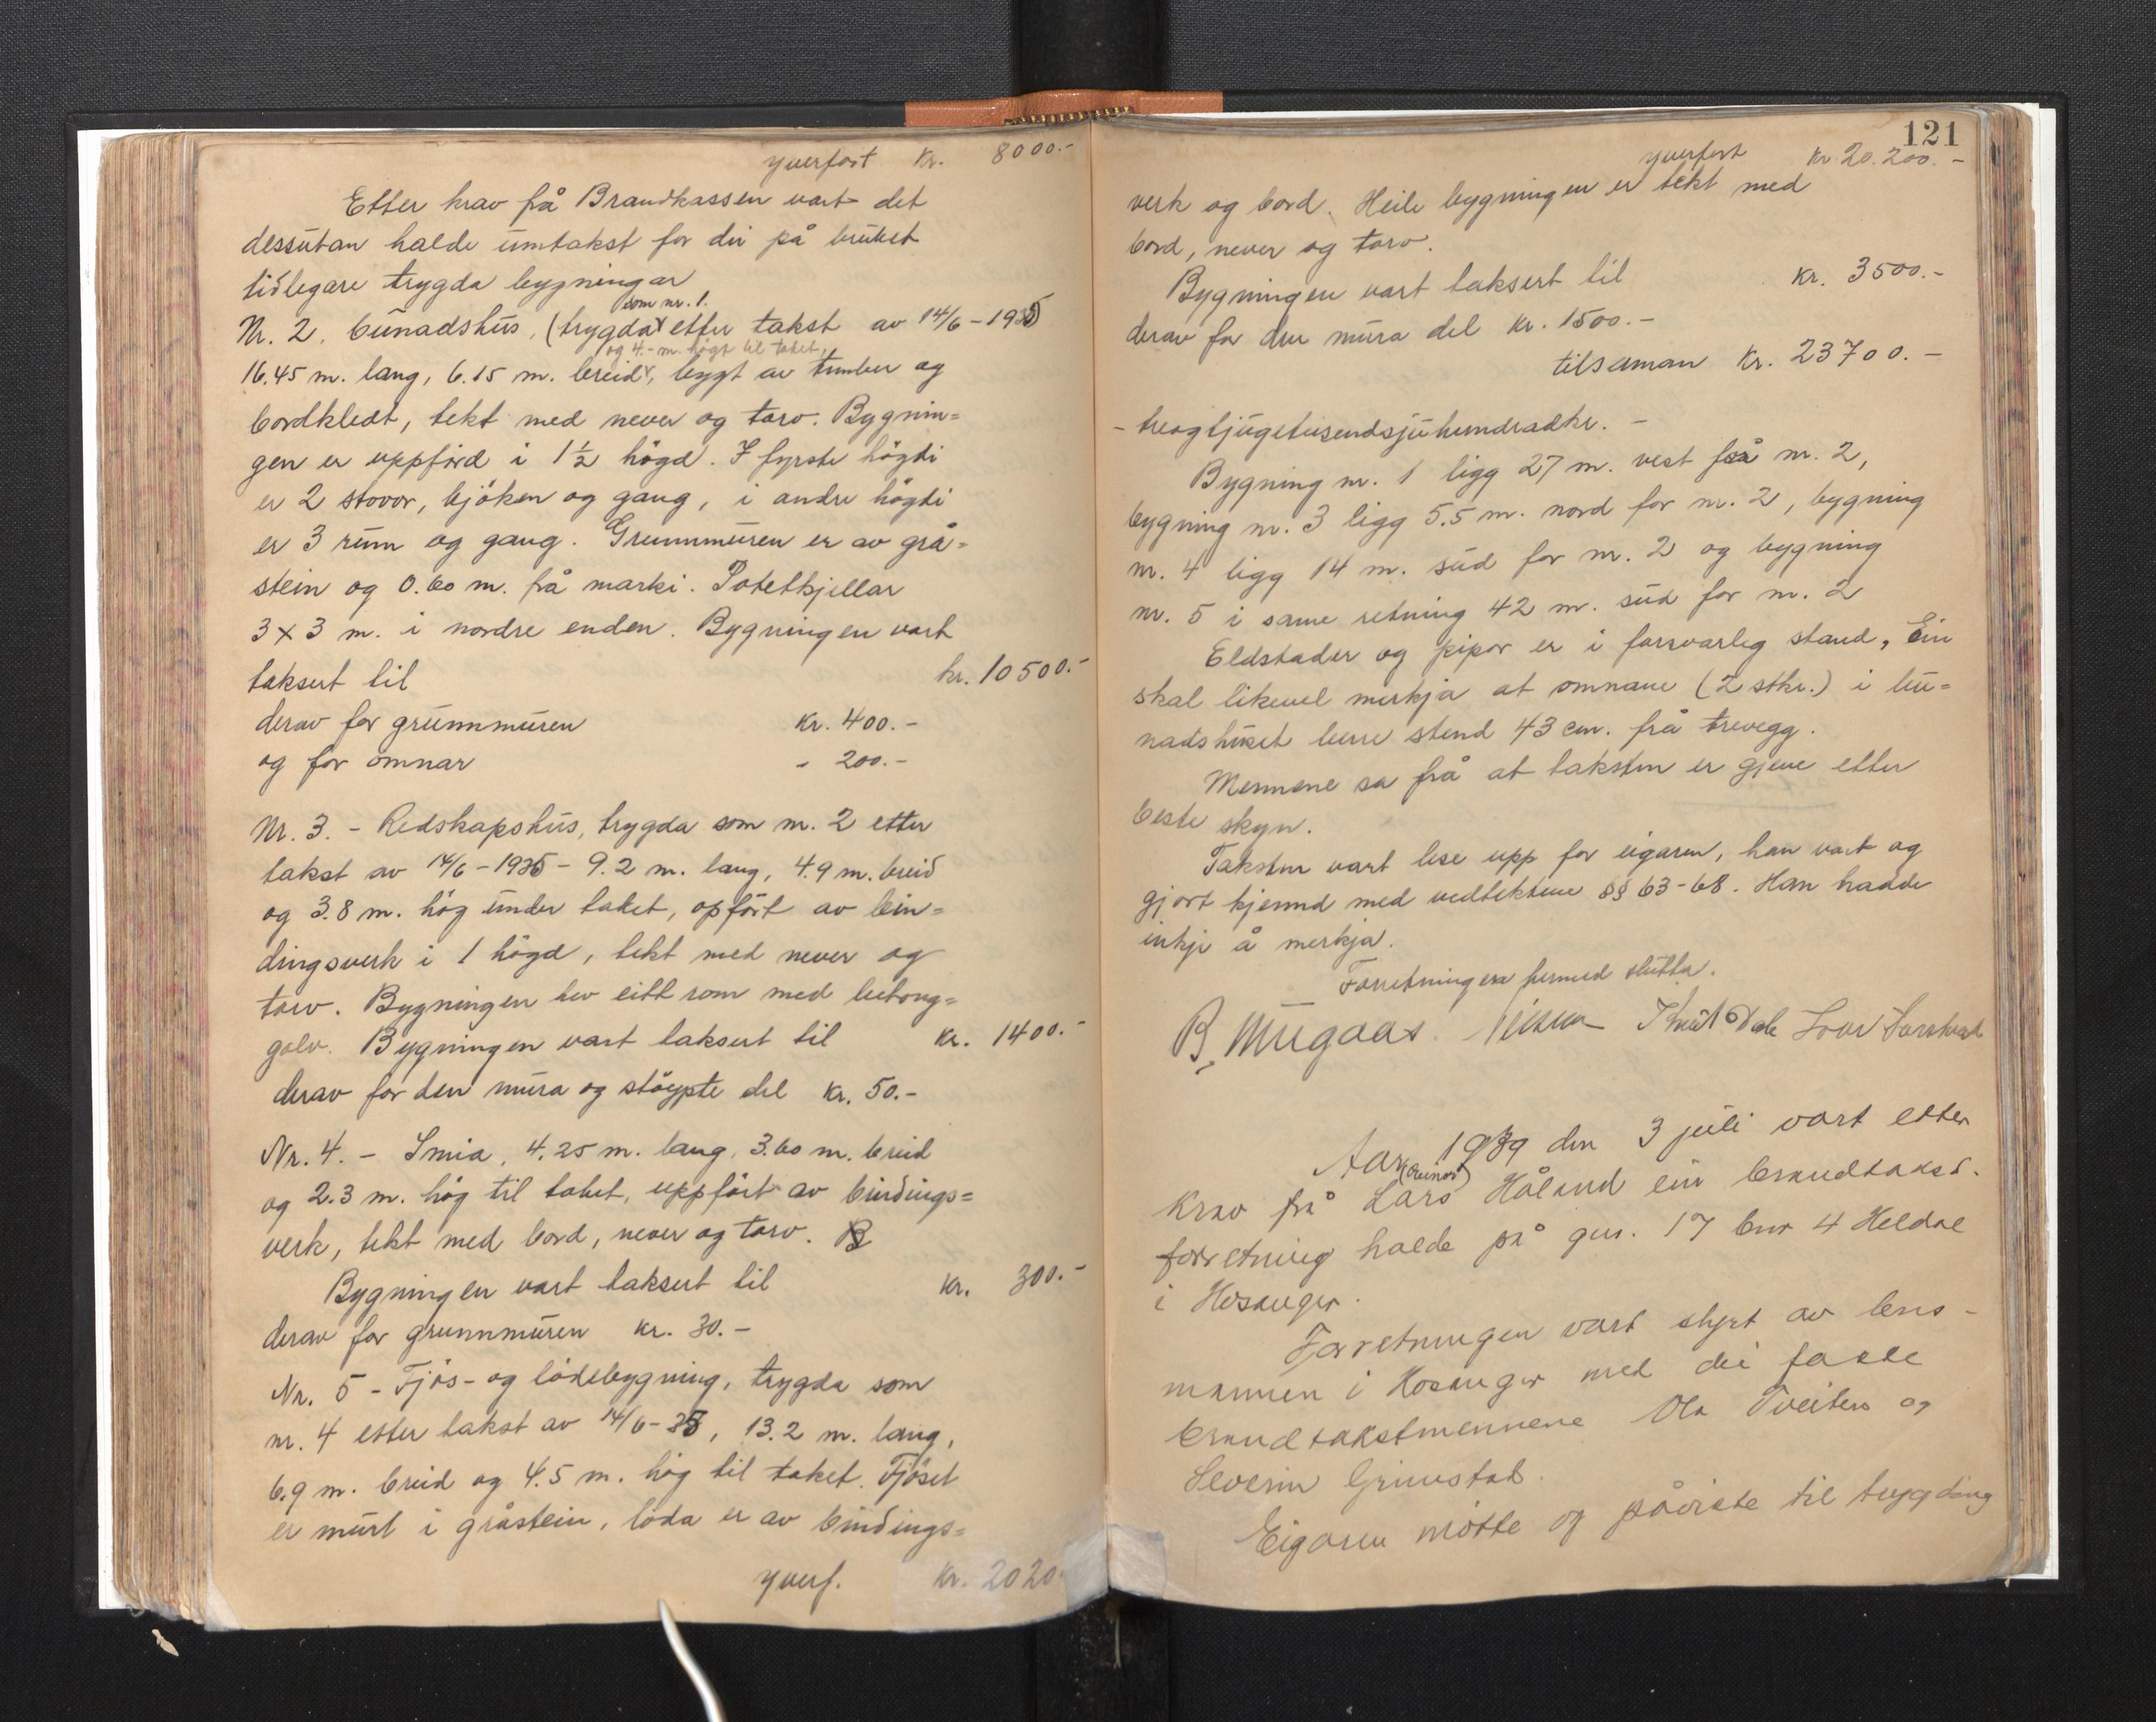 yverført kr. 8000.-
Etter krav frå Brandkassen vart det
dessutan halde umtakst for dei på bruket
tidlegare trygda bygningar
som nr. 1.
Nr. 2. bunadshus, (trygda etter takst av 14/6-1935)
og 4.- m. högt til taket,
16.45 m. lang, 6.15 m. breid, bygt av tømber og
bordkledt, tekt med never og torv. Bygnin=
gen er uppförd i 1½ högd. I fyrste högdi
er 2 stovor, kjöken og gang, i andre högdi
er 3 rum og gang. Grunnmuren er av grå=
stein og 0.60 m. frå marki. Potetkjellar
3 x 3 m. i nordre enden. Bygningen vart
taksert til kr. 10500.-
derav for grunnmuren kr. 400.-
og for omnar - 200.-
Nr. 3. - Redskapshus, trygda som nr. 2 etter
takst av 14/6-1935 - 9.2 m. lang, 4.9 m. breid
og 3.8 m. hög under taket, opfört av bin=
dingsverk i 1 högd, tekt med never og
torv. Bygningen hev eitt rom med betong=
golv. Bygningen vart taksert til kr. 1400.-
derav for den mura og stöypte del kr. 50.-
Nr. 4. - Smia, 4.25 m. lang, 3.60 m. breid
og 2.3 m. hög til taket, uppfört av bindings=
verk, tekt med bord, never og torv. B
Bygningen vart taksert til kr. 300.-
derav for grunnmuren kr. 30.-
Nr. 5 - Fjös- og lödebygning, trygda som
nr. 4 etter takst av 14/6-35, 13.2 m. lang,
6.9 m. breid og 4.5 m. hög til taket. Fjöset
er murt i gråstein, löda er av bindings=
yverf. kr. 2020
121
yverført kr. 20.200.-
verk og bord. Heile bygningen er tekt med
bord, never og torv.
Bygningen vart taksert til kr. 3500.-
derav for den mura del kr. 1500.-
tilsaman kr. 23700.-
- treogtjugetusendsjuhundradkr. -
Bygning nr. 1 ligg 27 m. vest frå nr. 2,
bygning nr. 3 ligg 5.5 m. nord for nr. 2, bygning
nr. 4 ligg 14 m. sud for nr. 2 og bygning
nr. 5 i same retning 42 m. sud for nr. 2
Eldstader og pipor er i forsvarleg stand, Ein
skal likevel merkja at omnane (2 stkr.) i bu=
nadshuset berre stend 43 cm. frå trevegg.
Mennene sa frå at taksten er gjeve etter
beste skyn.
Taksten vart lese upp for eigaren, han vart og
gjort kjennd med vedtektene §§ 63-68. Han hadde
inkje å merkja.
Forretningen hermed slutta.
B. Mugaas. Knut Dale
Aar 1939 den 3 juli vart etter
krav frå Lars Håland ein brandtakst-
forretning halde på gnr. 17 bnr 4 Heldal
i Hosanger.
Forretningen vart styrt av lens-
mannen i Hosanger med dei faste
brandtakstmennene Ola Tveiten og
Severin Grimstad.
Eigaren møtte og påviste til trygding